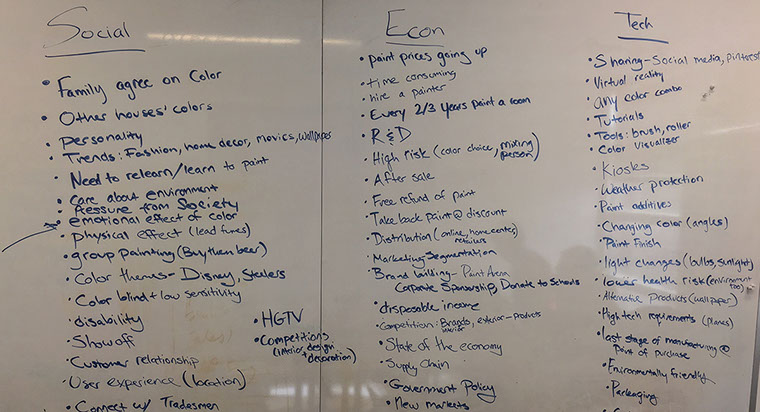 Social
• Family agree on Color
• Other houses' colors
• personality
• Trends: Fashion, home decor, movies, wallpaper
• Need to relearn/learn to paint
• care about environment
• Pressure from Society
• emotional effect of color
• physical effect (lead fumes)
• group painting (Buy them beer)
• Color themes - Disney, Steelers
• Color blind + low sensitivity
• disability
• Show off
• Customer relationship
• User experience (location)
• Connect w/ Tradesmen
• HGTV
• Competitions
(interior design
+ decoration)
Econ
• paint prices going up
• time consuming
• hire a painter
• Every 2/3 years paint a room
• R & D
• High risk (color choice, mixing
person)
• After sale
• Free refund of paint
• Take back paint @ discount
• Distribution (online, home center,
retailers
• Marketing - Segmentation
• Brand building - Paint Arena
Corporate Sponsorship, Donate to Schools
• disposable income
• Competition: Brands, exterior - products
interior
• State of the economy
• Supply Chain
• Government Policy
• New markets
Tech
• Sharing - Social media, pinterest
• Virtual reality
• any color combo
• Tutorials
• Tools: brush, roller
• Color Visualizer
• Kiosks
• Weather protection
• Paint additives
• Changing color (angles)
• Paint Finish
• light changes (bulbs, sunlight)
• lower health risk (environment
too)
• Alternative Products (wallpaper)
• High tech requirements (planes)
• last stage of manufacturing @
Point of purchase
• Environmentally friendly
• Packaging